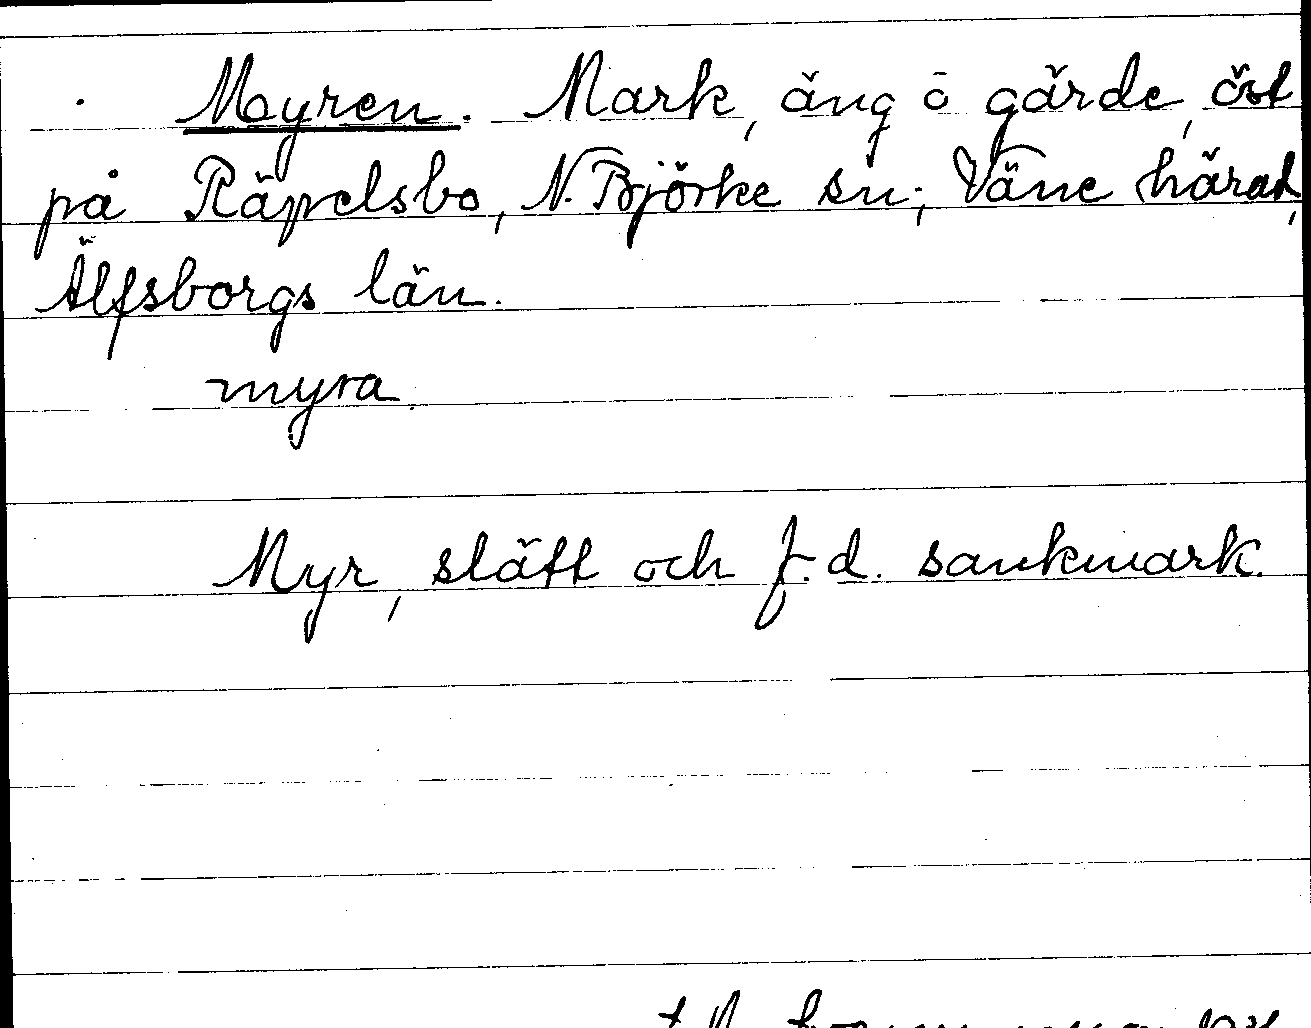 Myren. Mark, äng ō gärde, öst
på Räpelsbo, N. Björke sn; Väne härad,
Älfsborgs län.
myra.
Myr, slätt och f. d. sankmark.